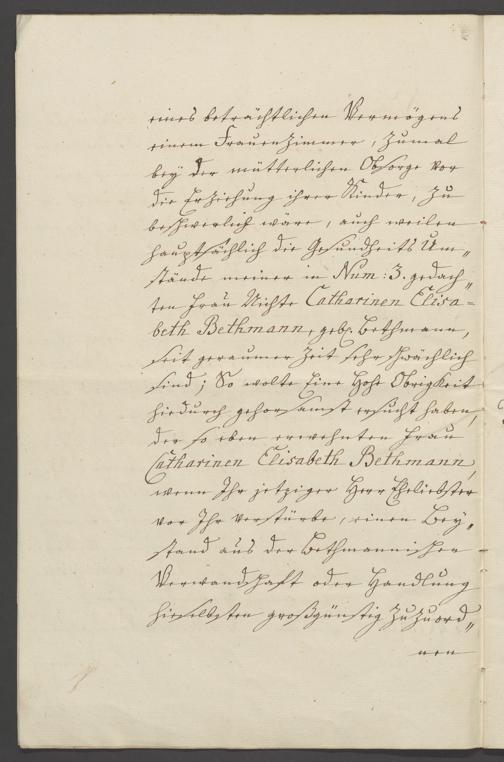 eines beträchtlichen Vermögens
einem Frauenzimmer, zumal
bey der mütterlichen Obsorge vor
die Erziehung ihrer Kinder, zu
beschwerlich wäre, auch weilen
hauptsächlich die Gesundheits Um„
stände meiner in Num: 3. gedach„
ten Frau Nichte Catharinen Elisa=
beth Bethmann, geb. Bethmann,
seit geraumer Zeit sehr schwächlich
sind; So wolte Eine Hohe Obrigkeit
hiedurch gehorsamst ersucht haben,
der so eben erwehnten Frau
Catharinen Elisabeth Bethmann,
wenn Ihr jetziger Herr Eheliebster
vor Ihr verstürbe, einen Bey„
stand aus der Bethmannischen
Verwandschaft oder Handlung
hieselbsten großgünstig zuzuord„
nen